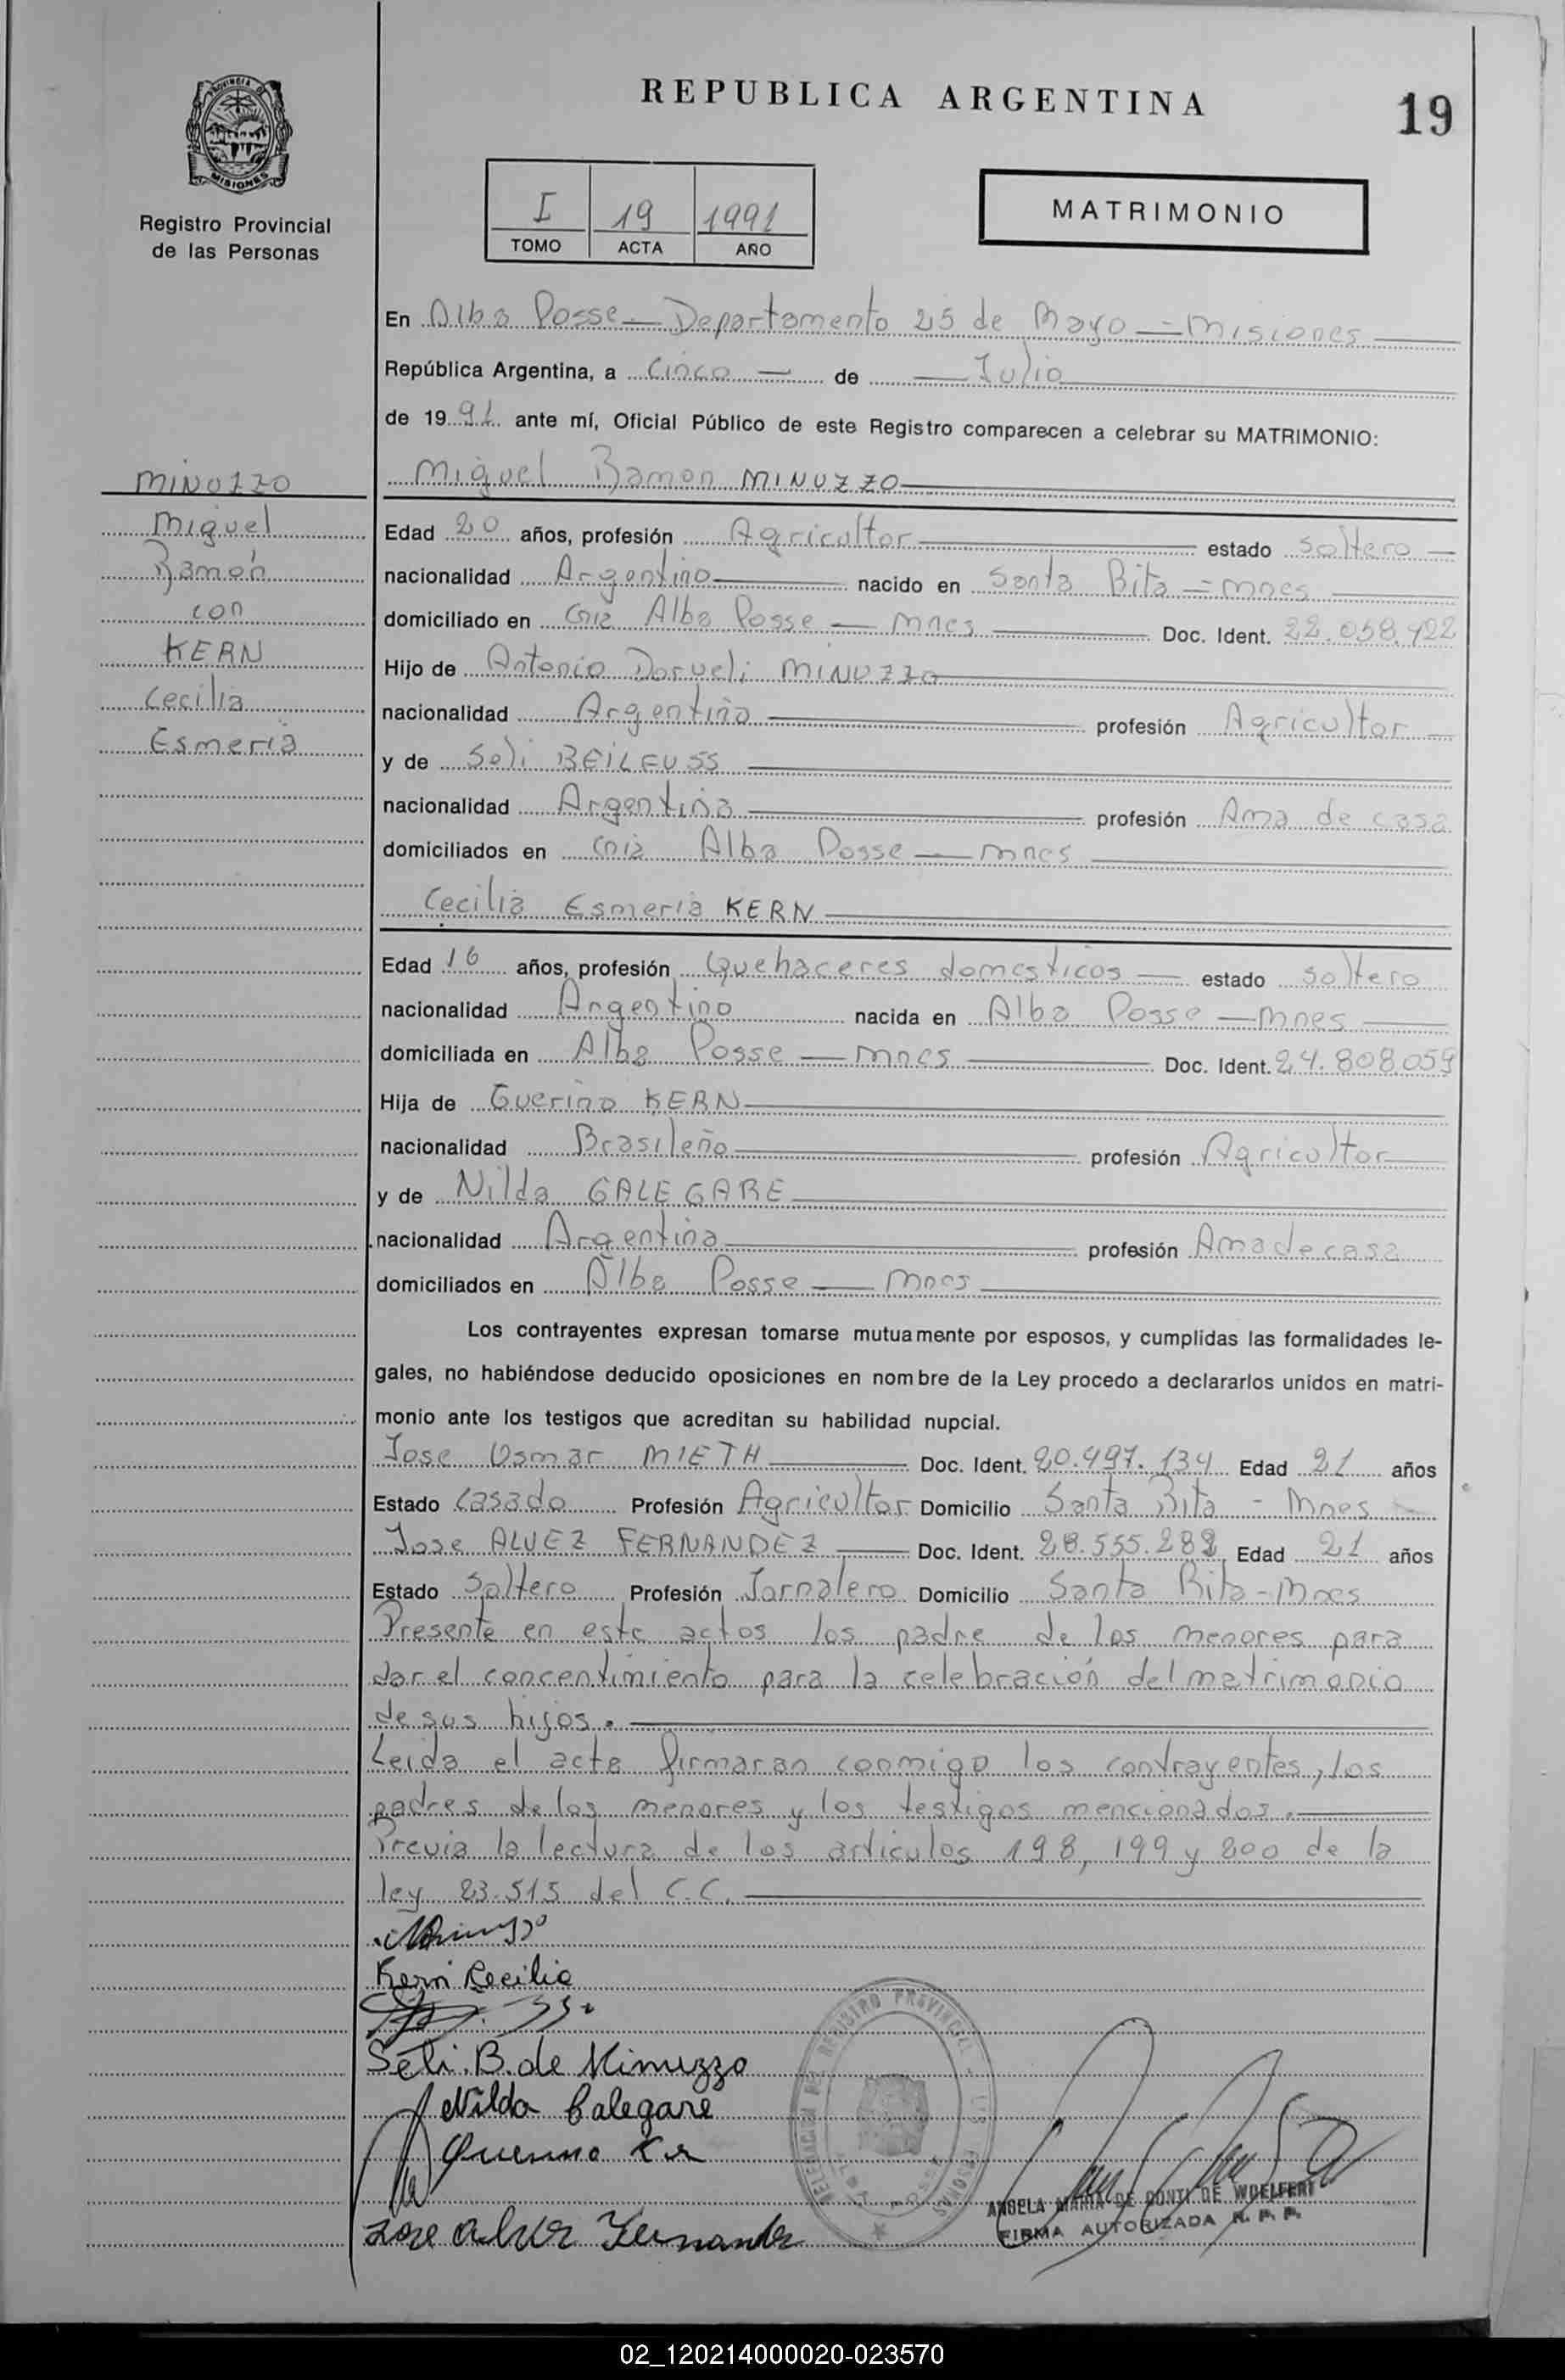 PROVINCIA DE
MISIONES
Registro Provincial
de las Personas
REPUBLICA ARGENTINA
19
I 19 1991
TOMO ACTA AÑO
MATRIMONIO
En Alba Posse — Departamento 25 de Mayo — Misiones
República Argentina, a Cinco — de — Julio
de 19 91 ante mí, Oficial Público de este Registro comparecen a celebrar su MATRIMONIO:
Miguel Ramon MINUZZO
MINUZZO
Miguel
Ramón
con
KERN
Cecilia
Esmeria
Edad 20 años, profesión Agricultor estado soltero
nacionalidad Argentino nacido en Santa Rita = Mnes
domiciliado en Alba Posse — Mnes Doc. Ident. 22.058.922
Hijo de Antonio Dorveli MINUZZO
nacionalidad Argentino profesión Agricultor
y de Seli BEILEUSS
nacionalidad Argentina profesión Ama de casa
domiciliados en Alba Posse — Mnes
Cecilia Esmeria KERN
Edad 16 años, profesión Quehaceres domesticos estado soltero
nacionalidad Argentino nacida en Alba Posse — Mnes
domiciliada en Alba Posse — Mnes Doc. Ident. 24.808.059
Hija de Guerino KERN
nacionalidad Brasileño profesión Agricultor
y de Nilda GALEGARE
nacionalidad Argentina profesión Ama de casa
domiciliados en Alba Posse — Mnes
Los contrayentes expresan tomarse mutuamente por esposos, y cumplidas las formalidades le-
gales, no habiéndose deducido oposiciones en nombre de la Ley procedo a declararlos unidos en matri-
monio ante los testigos que acreditan su habilidad nupcial.
Jose Osmar MIETH Doc. Ident. 20.497.134 Edad 21 años
Estado Casado Profesión Agricultor Domicilio Santa Rita - Mnes
Jose ALVEZ FERNANDEZ Doc. Ident. 28.555.282 Edad 21 años
Estado Soltero Profesión Jornalero Domicilio Santa Rita - Mnes
Presente en este actos los padre de los menores para
dar el concentimiento para la celebración del matrimonio
de sus hijos.
Leida el acta firmaran conmigo los contrayentes, los
padres de los menores y los testigos mencionados.
Previa la lectura de los articulos 198, 199 y 200 de la
ley 23.515 del C.C.
Kern Cecilia
Seli B. de Minuzzo
Nilda Calegare
Jose Alvez Fernandez
ANGELA MARIA DE CONTI DE WOELFERT
FIRMA AUTORIZADA R. P. P.
02_120214000020-023570